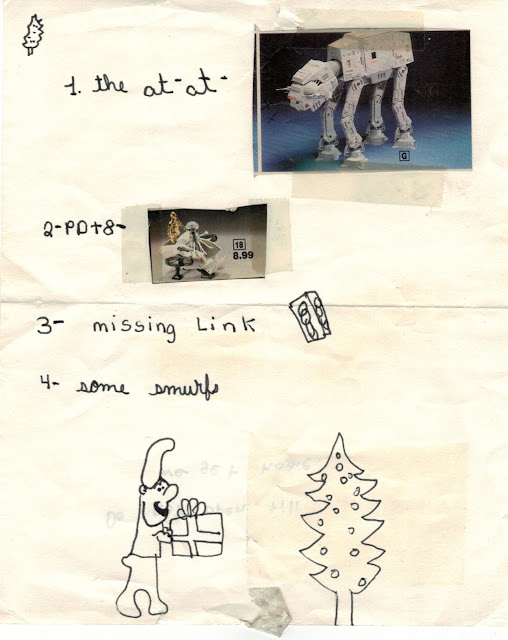 1. the at-at-
G
2-PD+8-
18
8.99
3- missing Link
4- some smurfs